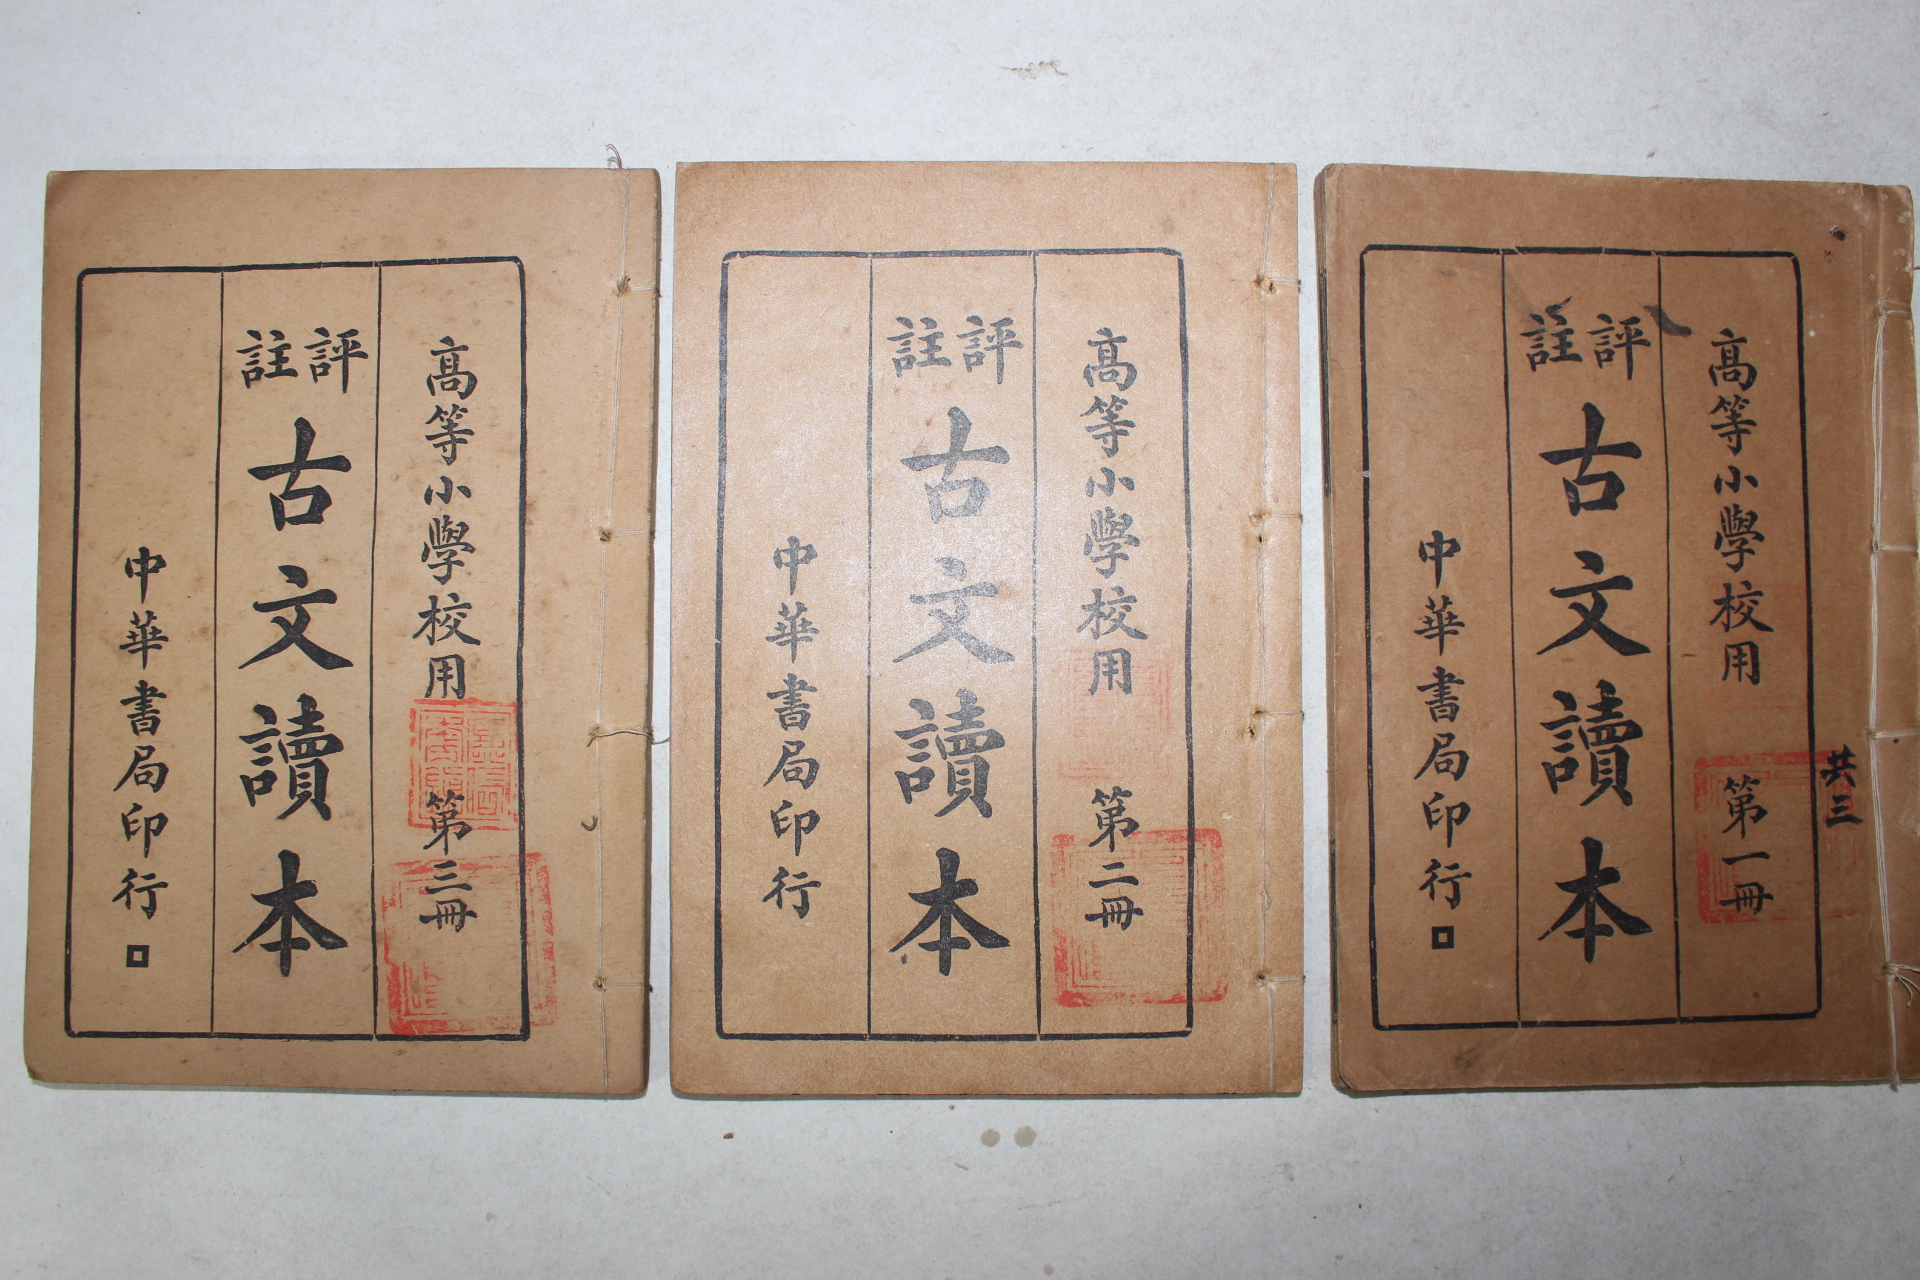 高等小學校用 第一冊
評註
古文讀本
中華書局印行
共三
高等小學校用 第二冊
評註
古文讀本
中華書局印行
高等小學校用 第三冊
評註
古文讀本
中華書局印行